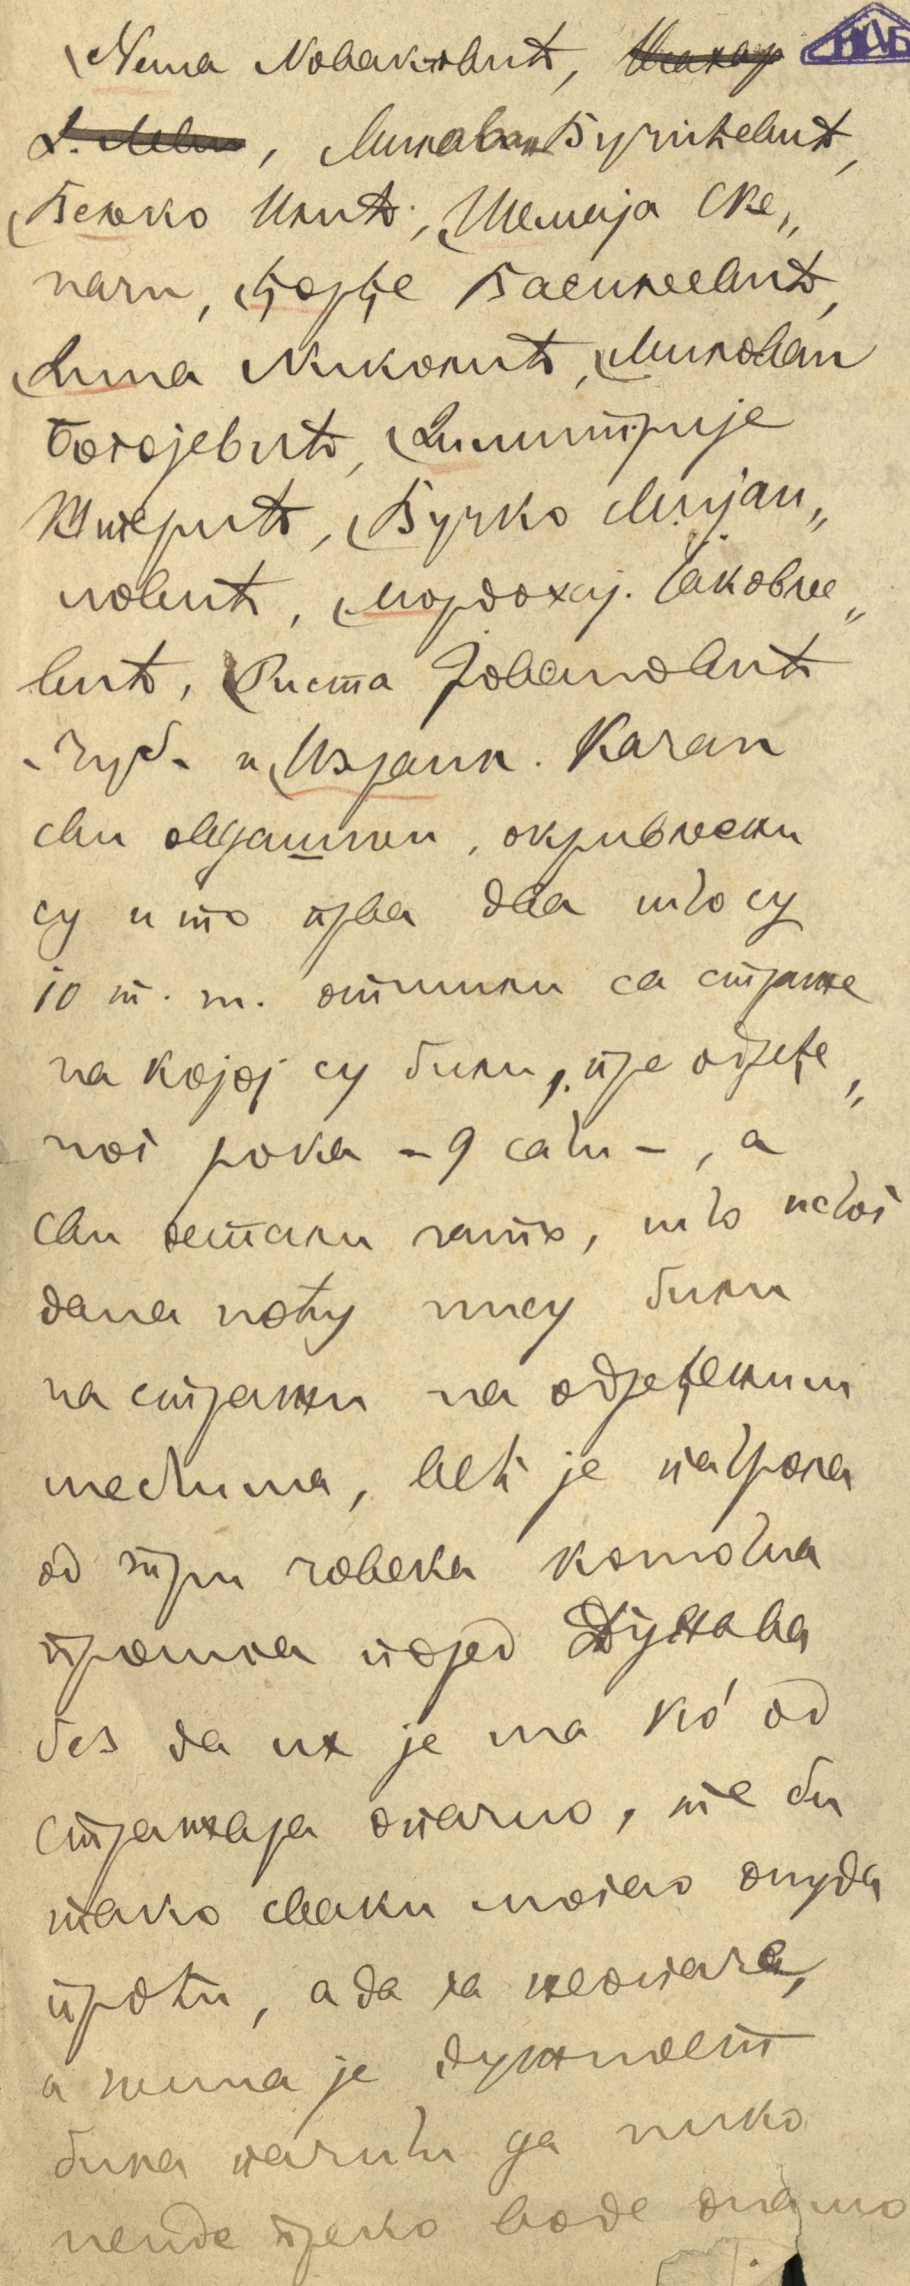 Неша Новаковић,
, Милован Вучићевић,
Вељко Илић, Шемаја Ске„
нази, Ђорђе Василевић,
Дина Николић, Милован
Богојевић, Димитрије
Шперић, Вучко Мијаи„
ловић, Мордохај Јаковље„
вић, Риста Јовановић
- Чуб - и Израил. Качан
сви овдашњи, окривљени
су и то прва два што су
10 т. м. отишли са страже
на којој су били, пре одређе„
ног рока – 9 сати –, а
сви остали зато, што истог
дана ноћу нису били
на стражи на одређеним
местима, већ је патрола
од три човека комотна
прошла поред Дунава
без да их је ма ко од
стражара опазио, те би
тако сваки могао онуда
проћи, а да га неопазе,
а њима је дужност
била пазити да нико
неиђе преко воде онамо